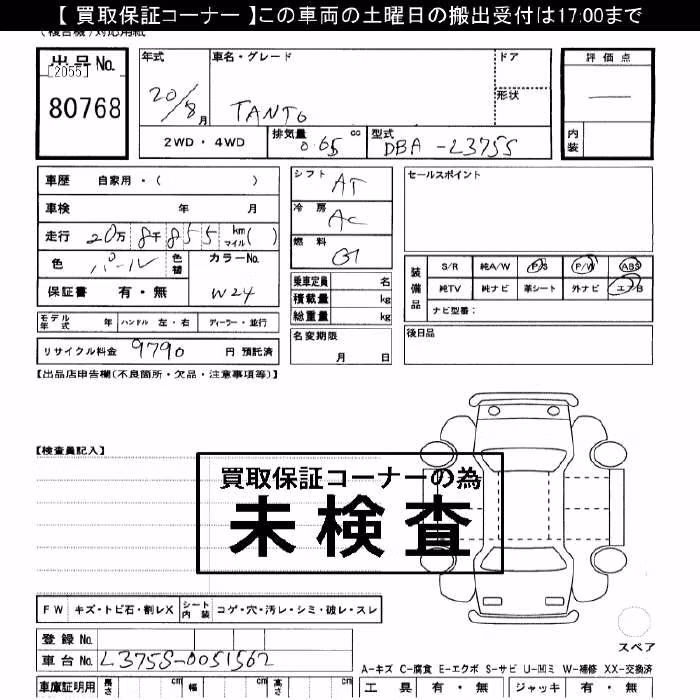 【 買取保証コーナー 】この車両の土曜日の搬出受付は17:00まで
出品No.
[2055]
80768
年式
20/8月
車名・グレード
TANTO
ドア
形状
評価点
—
内装
2WD・4WD
排気量 0.65 cc
型式 DBA-L375S
車歴 自家用・( )
車検 年 月
走行 20万8千855 km マイル( )
色 パール 色替
カラーNo. W24
保証書 有・無
モデル年式 年 ハンドル 左・右 ディーラー・並行
リサイクル料金 9790 円 預託済
シフト AT
冷房 AC
燃料 G
乗車定員 名
積載量 kg
総重量 kg
名変期限 月 日
セールスポイント
装備品
S/R 純A/W P/S P/W ABS
純TV 純ナビ 革シート 外ナビ エアB
ナビ型番:
後日品
【出品店申告欄(不良箇所・欠品・注意事項等)】
【検査員記入】
買取保証コーナーの為
未検査
FW キズ・トビ石・割レX シート内装 コゲ・穴・汚レ・シミ・破レ・スレ
登録No.
車台No. L375S-0051562
スペア
A-キズ C-腐食 E-エクボ S-サビ U-凹ミ W-補修 XX-交換済
車庫証明用 長さ cm 幅 cm 高さ cm
工具 有・無 ジャッキ 有・無